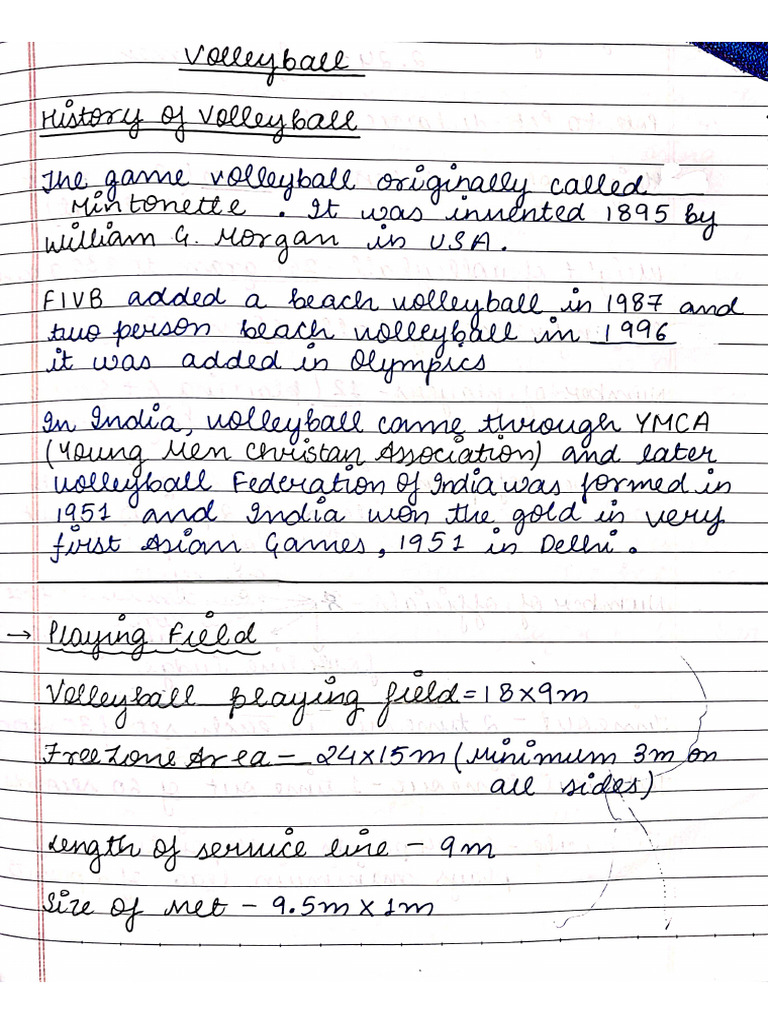 Volleyball
History of Volleyball
The game volleyball originally called
Mintonette . It was invented 1895 by
William G. Morgan in USA.
FIVB added a beach volleyball in 1987 and
two person beach volleyball in 1996
it was added in Olympics
In India, volleyball came through YMCA
(Young Men Christan Association) and later
volleyball Federation of India was formed in
1951 and India won the gold in very
first Asian Games, 1951 in Delhi.
→ Playing Field
Volleyball playing field = 18×9m
Free Zone Area – 24×15m (Minimum 3m on
all sides)
Length of service line – 9m
Size of Net – 9.5m × 1m